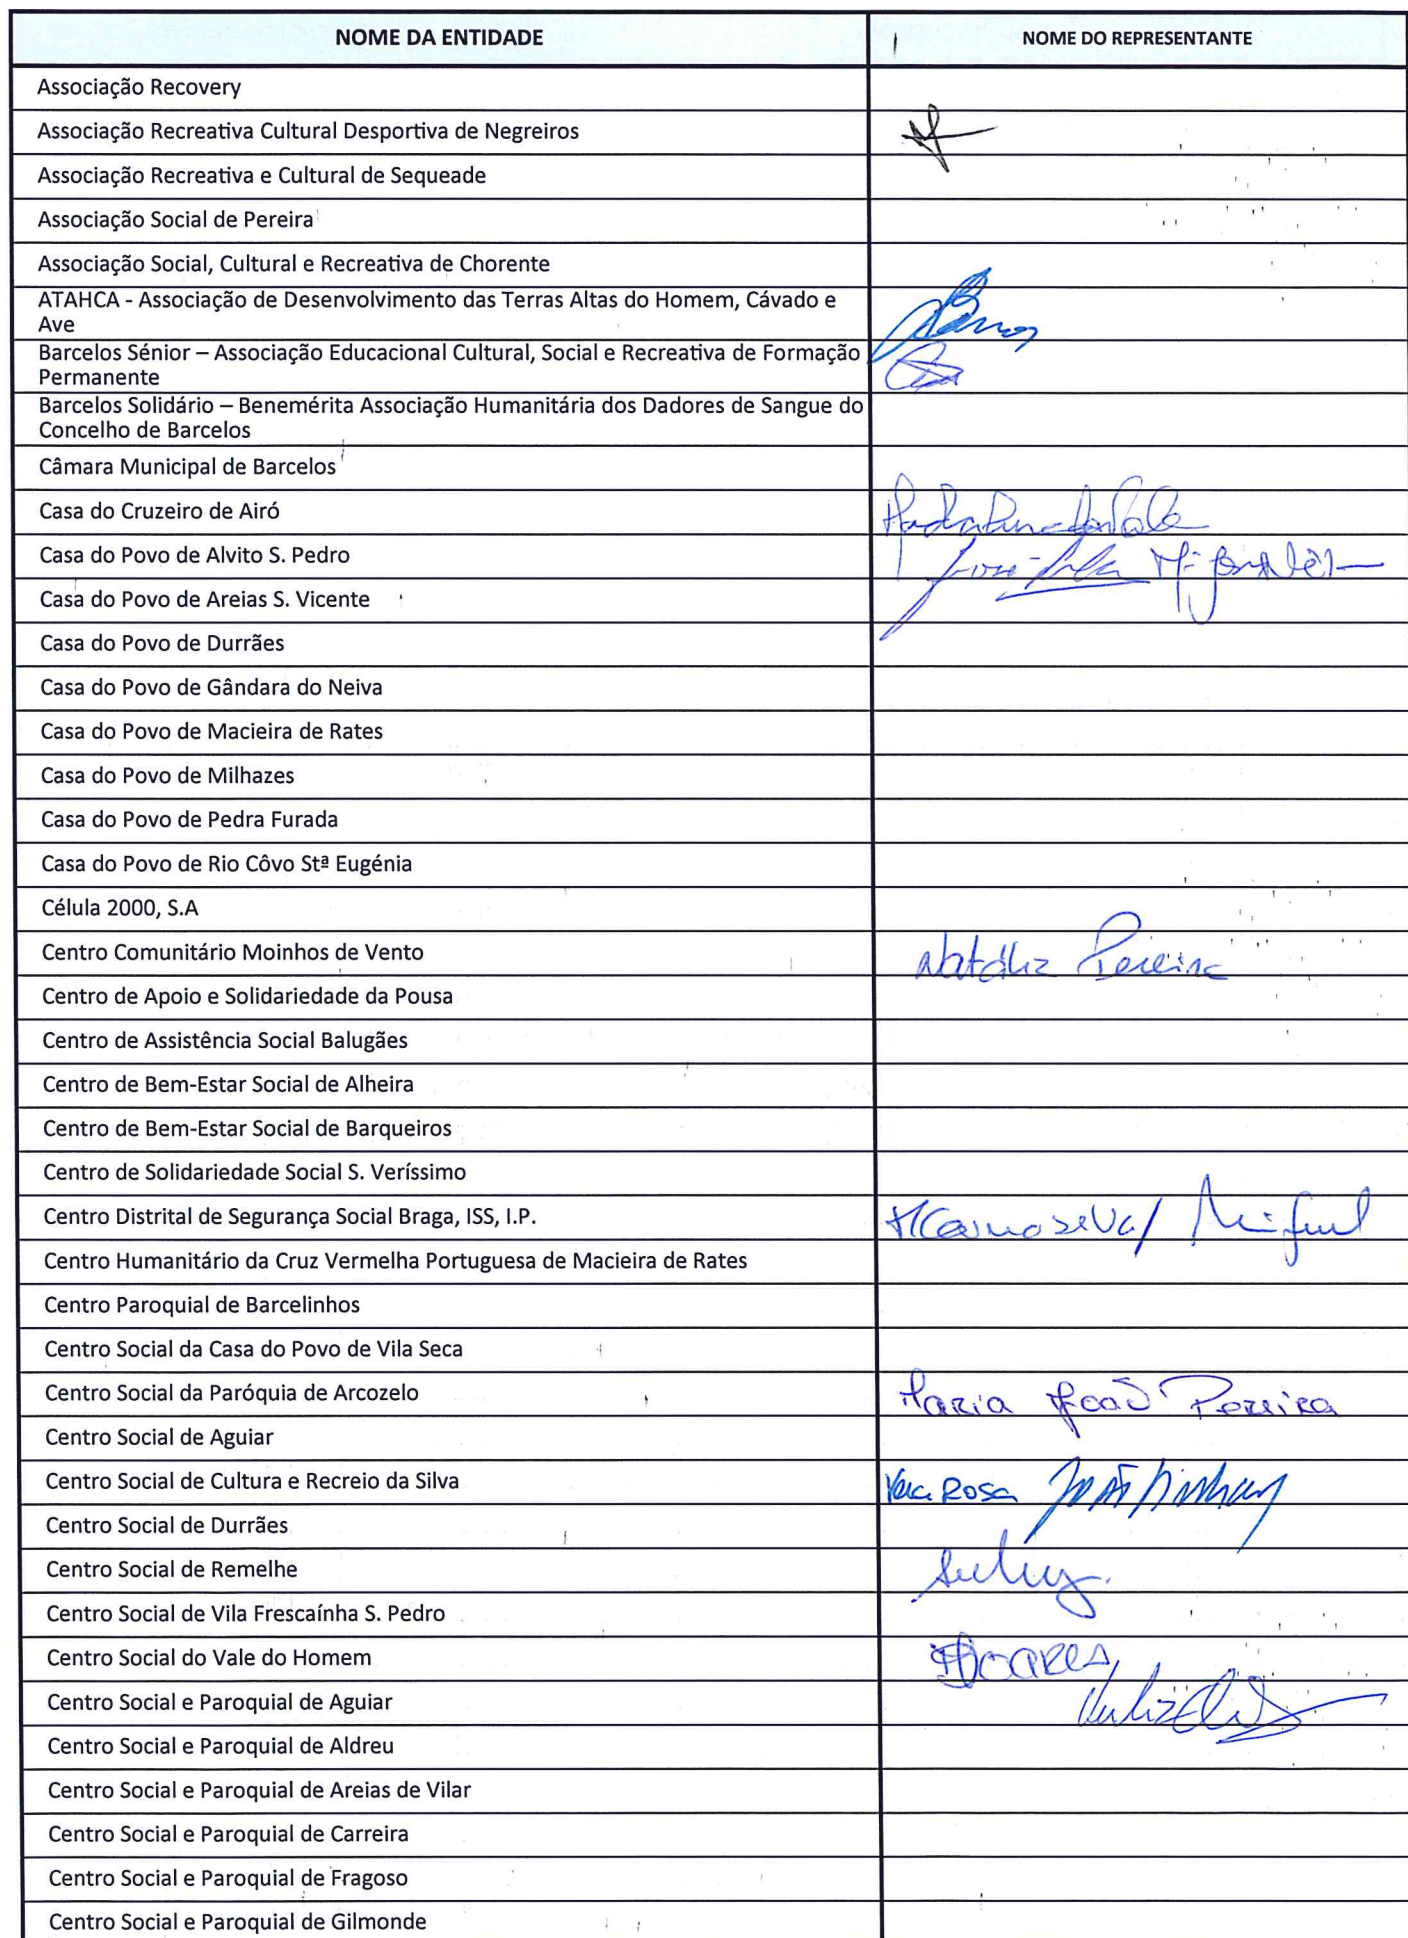 NOME DA ENTIDADE NOME DO REPRESENTANTE
Associação Recovery
Associação Recreativa Cultural Desportiva de Negreiros
Associação Recreativa e Cultural de Sequeade
Associação Social de Pereira
Associação Social, Cultural e Recreativa de Chorente
ATAHCA - Associação de Desenvolvimento das Terras Altas do Homem, Cávado e
Ave
Barcelos Sénior – Associação Educacional Cultural, Social e Recreativa de Formação
Permanente
Barcelos Solidário – Benemérita Associação Humanitária dos Dadores de Sangue do
Concelho de Barcelos
Câmara Municipal de Barcelos
Casa do Cruzeiro de Airó
Casa do Povo de Alvito S. Pedro
Casa do Povo de Areias S. Vicente
Casa do Povo de Durrães
Casa do Povo de Gândara do Neiva
Casa do Povo de Macieira de Rates
Casa do Povo de Milhazes
Casa do Povo de Pedra Furada
Casa do Povo de Rio Côvo Stª Eugénia
Célula 2000, S.A
Centro Comunitário Moinhos de Vento Natália Pereira
Centro de Apoio e Solidariedade da Pousa
Centro de Assistência Social Balugães
Centro de Bem-Estar Social de Alheira
Centro de Bem-Estar Social de Barqueiros
Centro de Solidariedade Social S. Veríssimo
Centro Distrital de Segurança Social Braga, ISS, I.P. / Miguel
Centro Humanitário da Cruz Vermelha Portuguesa de Macieira de Rates
Centro Paroquial de Barcelinhos
Centro Social da Casa do Povo de Vila Seca
Centro Social da Paróquia de Arcozelo Maria João Pereira
Centro Social de Aguiar
Centro Social de Cultura e Recreio da Silva Vera Rosa
Centro Social de Durrães
Centro Social de Remelhe
Centro Social de Vila Frescaínha S. Pedro
Centro Social do Vale do Homem
Centro Social e Paroquial de Aguiar
Centro Social e Paroquial de Aldreu
Centro Social e Paroquial de Areias de Vilar
Centro Social e Paroquial de Carreira
Centro Social e Paroquial de Fragoso
Centro Social e Paroquial de Gilmonde